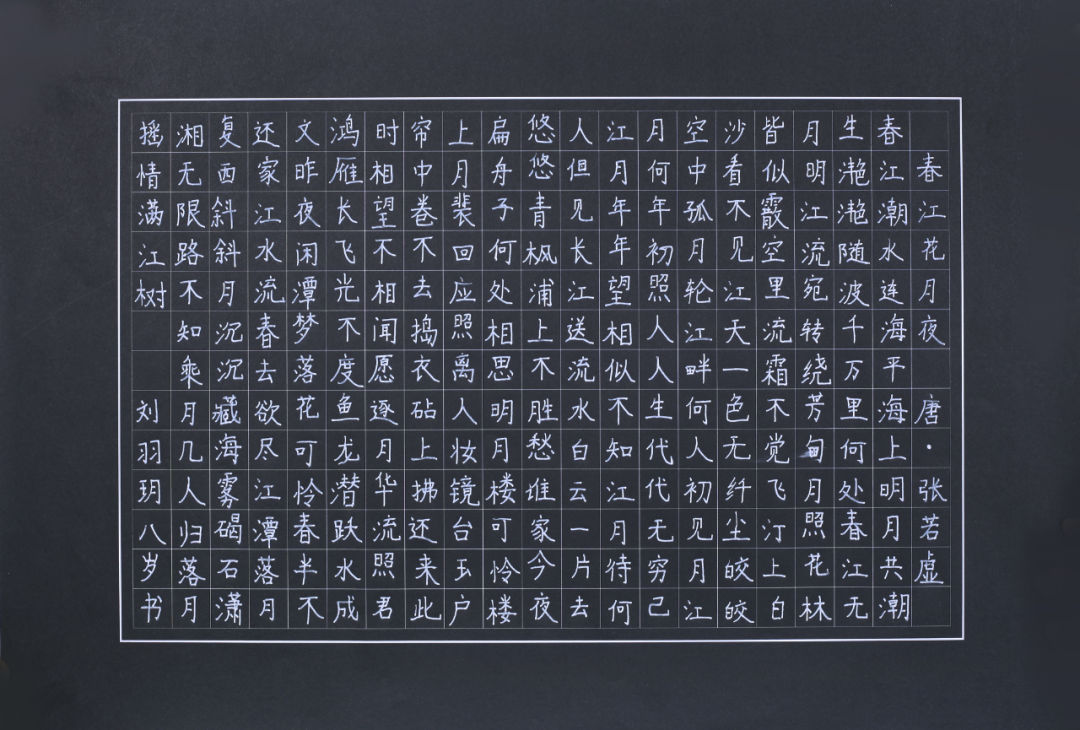 春江花月夜 唐·张若虚
春江潮水连海平海上明月共潮
生滟滟随波千万里何处春江无
月明江流宛转绕芳甸月照花林
皆似霰空里流霜不觉飞汀上白
沙看不见江天一色无纤尘皎皎
空中孤月轮江畔何人初见月江
月何年初照人人生代代无穷已
江月年年望相似不知江月待何
人但见长江送流水白云一片去
悠悠青枫浦上不胜愁谁家今夜
扁舟子何处相思明月楼可怜楼
上月裴回应照离人妆镜台玉户
帘中卷不去捣衣砧上拂还来此
时相望不相闻愿逐月华流照君
鸿雁长飞光不度鱼龙潜跃水成
文昨夜闲潭梦落花可怜春半不
还家江水流春去欲尽江潭落月
复西斜斜月沉沉藏海雾碣石潇
湘无限路不知乘月几人归落月
摇情满江树 刘羽玥八岁书